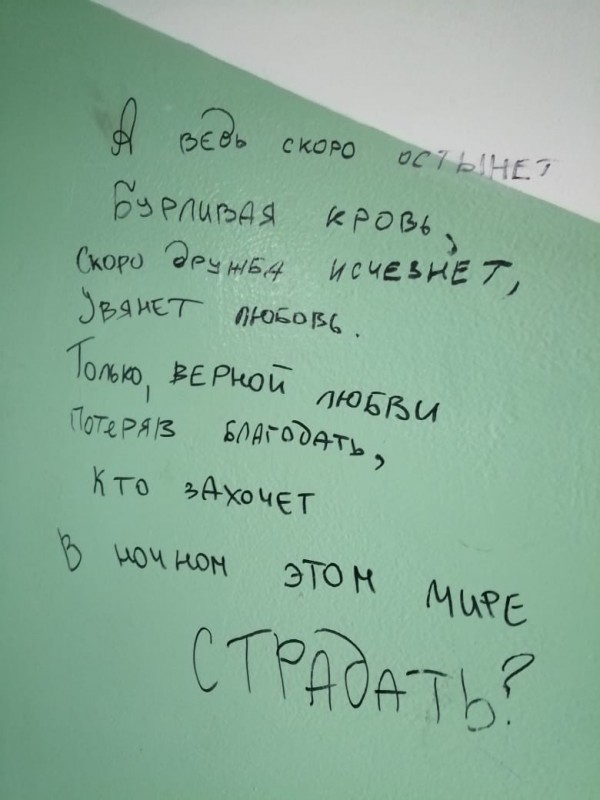 А ведь скоро остынет
Бурливая кровь,
Скоро дружба исчезнет,
Увянет любовь.
Только, верной любви
Потеряв благодать,
Кто захочет
В ночном этом мире
СТРАДАТЬ?